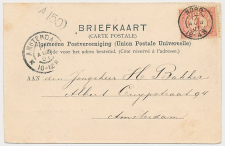 BRIEFKAART
(CARTE POSTALE)
Algemeene Postvereeniging (Union Postale Universelle)
Zijde voor het adres bestemd. (Côté réservé à l'adresse.)
AMSTERDAM
AAN den jongeheer H. Bakker
Albert Cuypstraat 94
Amsterdam